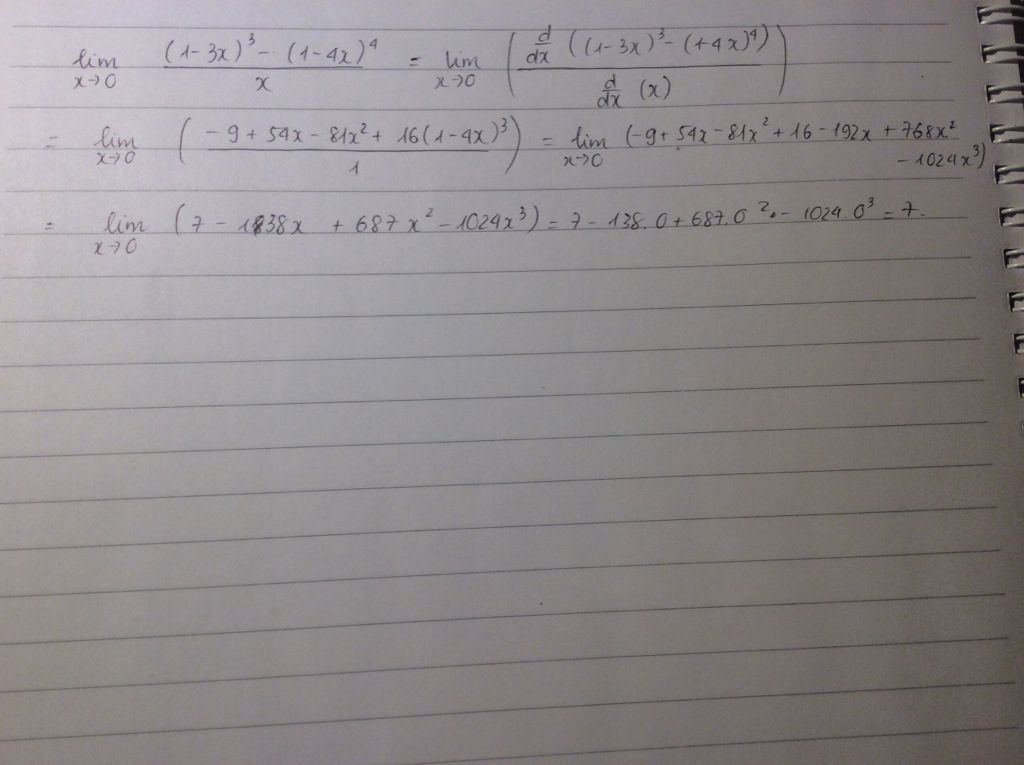 lim x→0 (1-3x)³ - (1-4x)⁴ / x = lim x→0 ( d/dx ((1-3x)³ - (1-4x)⁴) / d/dx (x) )
= lim x→0 ( -9 + 54x - 81x² + 16(1-4x)³ / 1 ) = lim x→0 (-9 + 54x - 81x² + 16 - 192x + 768x²
- 1024x³)
= lim x→0 (7 - 138x + 687x² - 1024x³) = 7 - 138.0 + 687.0² - 1024.0³ = 7.